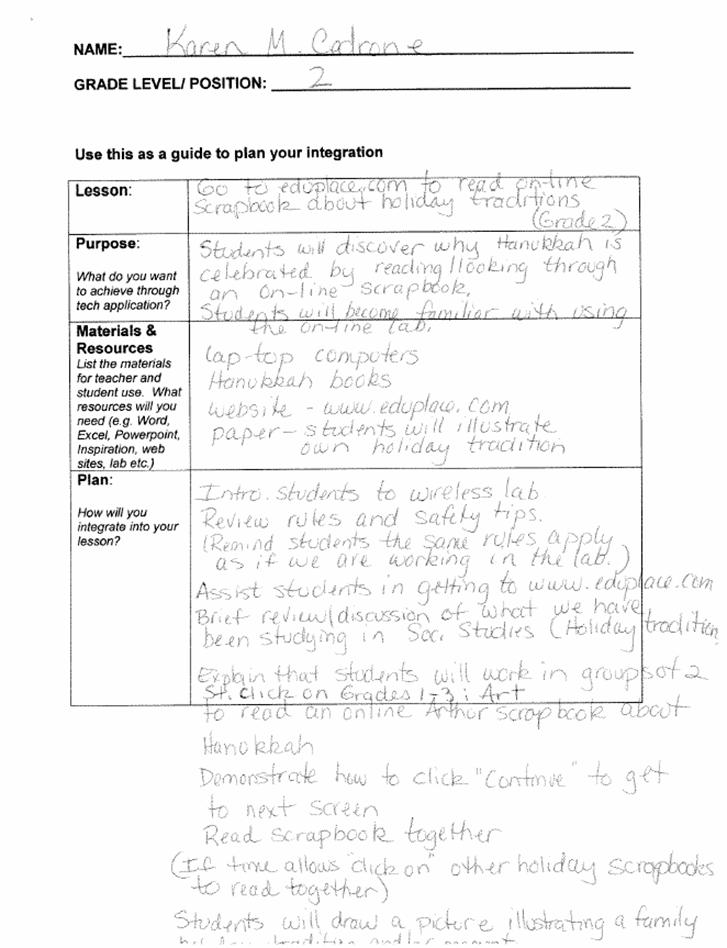 NAME: Karen M. Cadrone
GRADE LEVEL/ POSITION: 2
Use this as a guide to plan your integration
Lesson:
Go to eduplace.com to read on-line
scrapbook about holiday traditions
(Grade 2)
Purpose:
What do you want
to achieve through
tech application?
Students will discover why Hanukkah is
celebrated by reading/looking through
an on-line scrapbook.
Students will become familiar with using
the on-line lab.
Materials &
Resources
List the materials
for teacher and
student use. What
resources will you
need (e.g. Word,
Excel, Powerpoint,
Inspiration, web
sites, lab etc.)
lap-top computers
Hanukkah books
website - www.eduplace.com
paper - students will illustrate
own holiday tradition
Plan:
How will you
integrate into your
lesson?
Intro. students to wireless lab
Review rules and safety tips.
(Remind students the same rules apply
as if we are working in the lab.)
Assist students in getting to www.eduplace.com
Brief review/discussion of what we have
been studying in Soc. Studies (Holiday tradition
Explain that students will work in groups of 2
St. click on Grades 1-3 : Art
to read an online Arthur scrapbook about
Hanukkah
Demonstrate how to click "Continue" to get
to next screen
Read scrapbook together
(If time allows "click on" other holiday scrapbooks
to read together)
Students will draw a picture illustrating a family